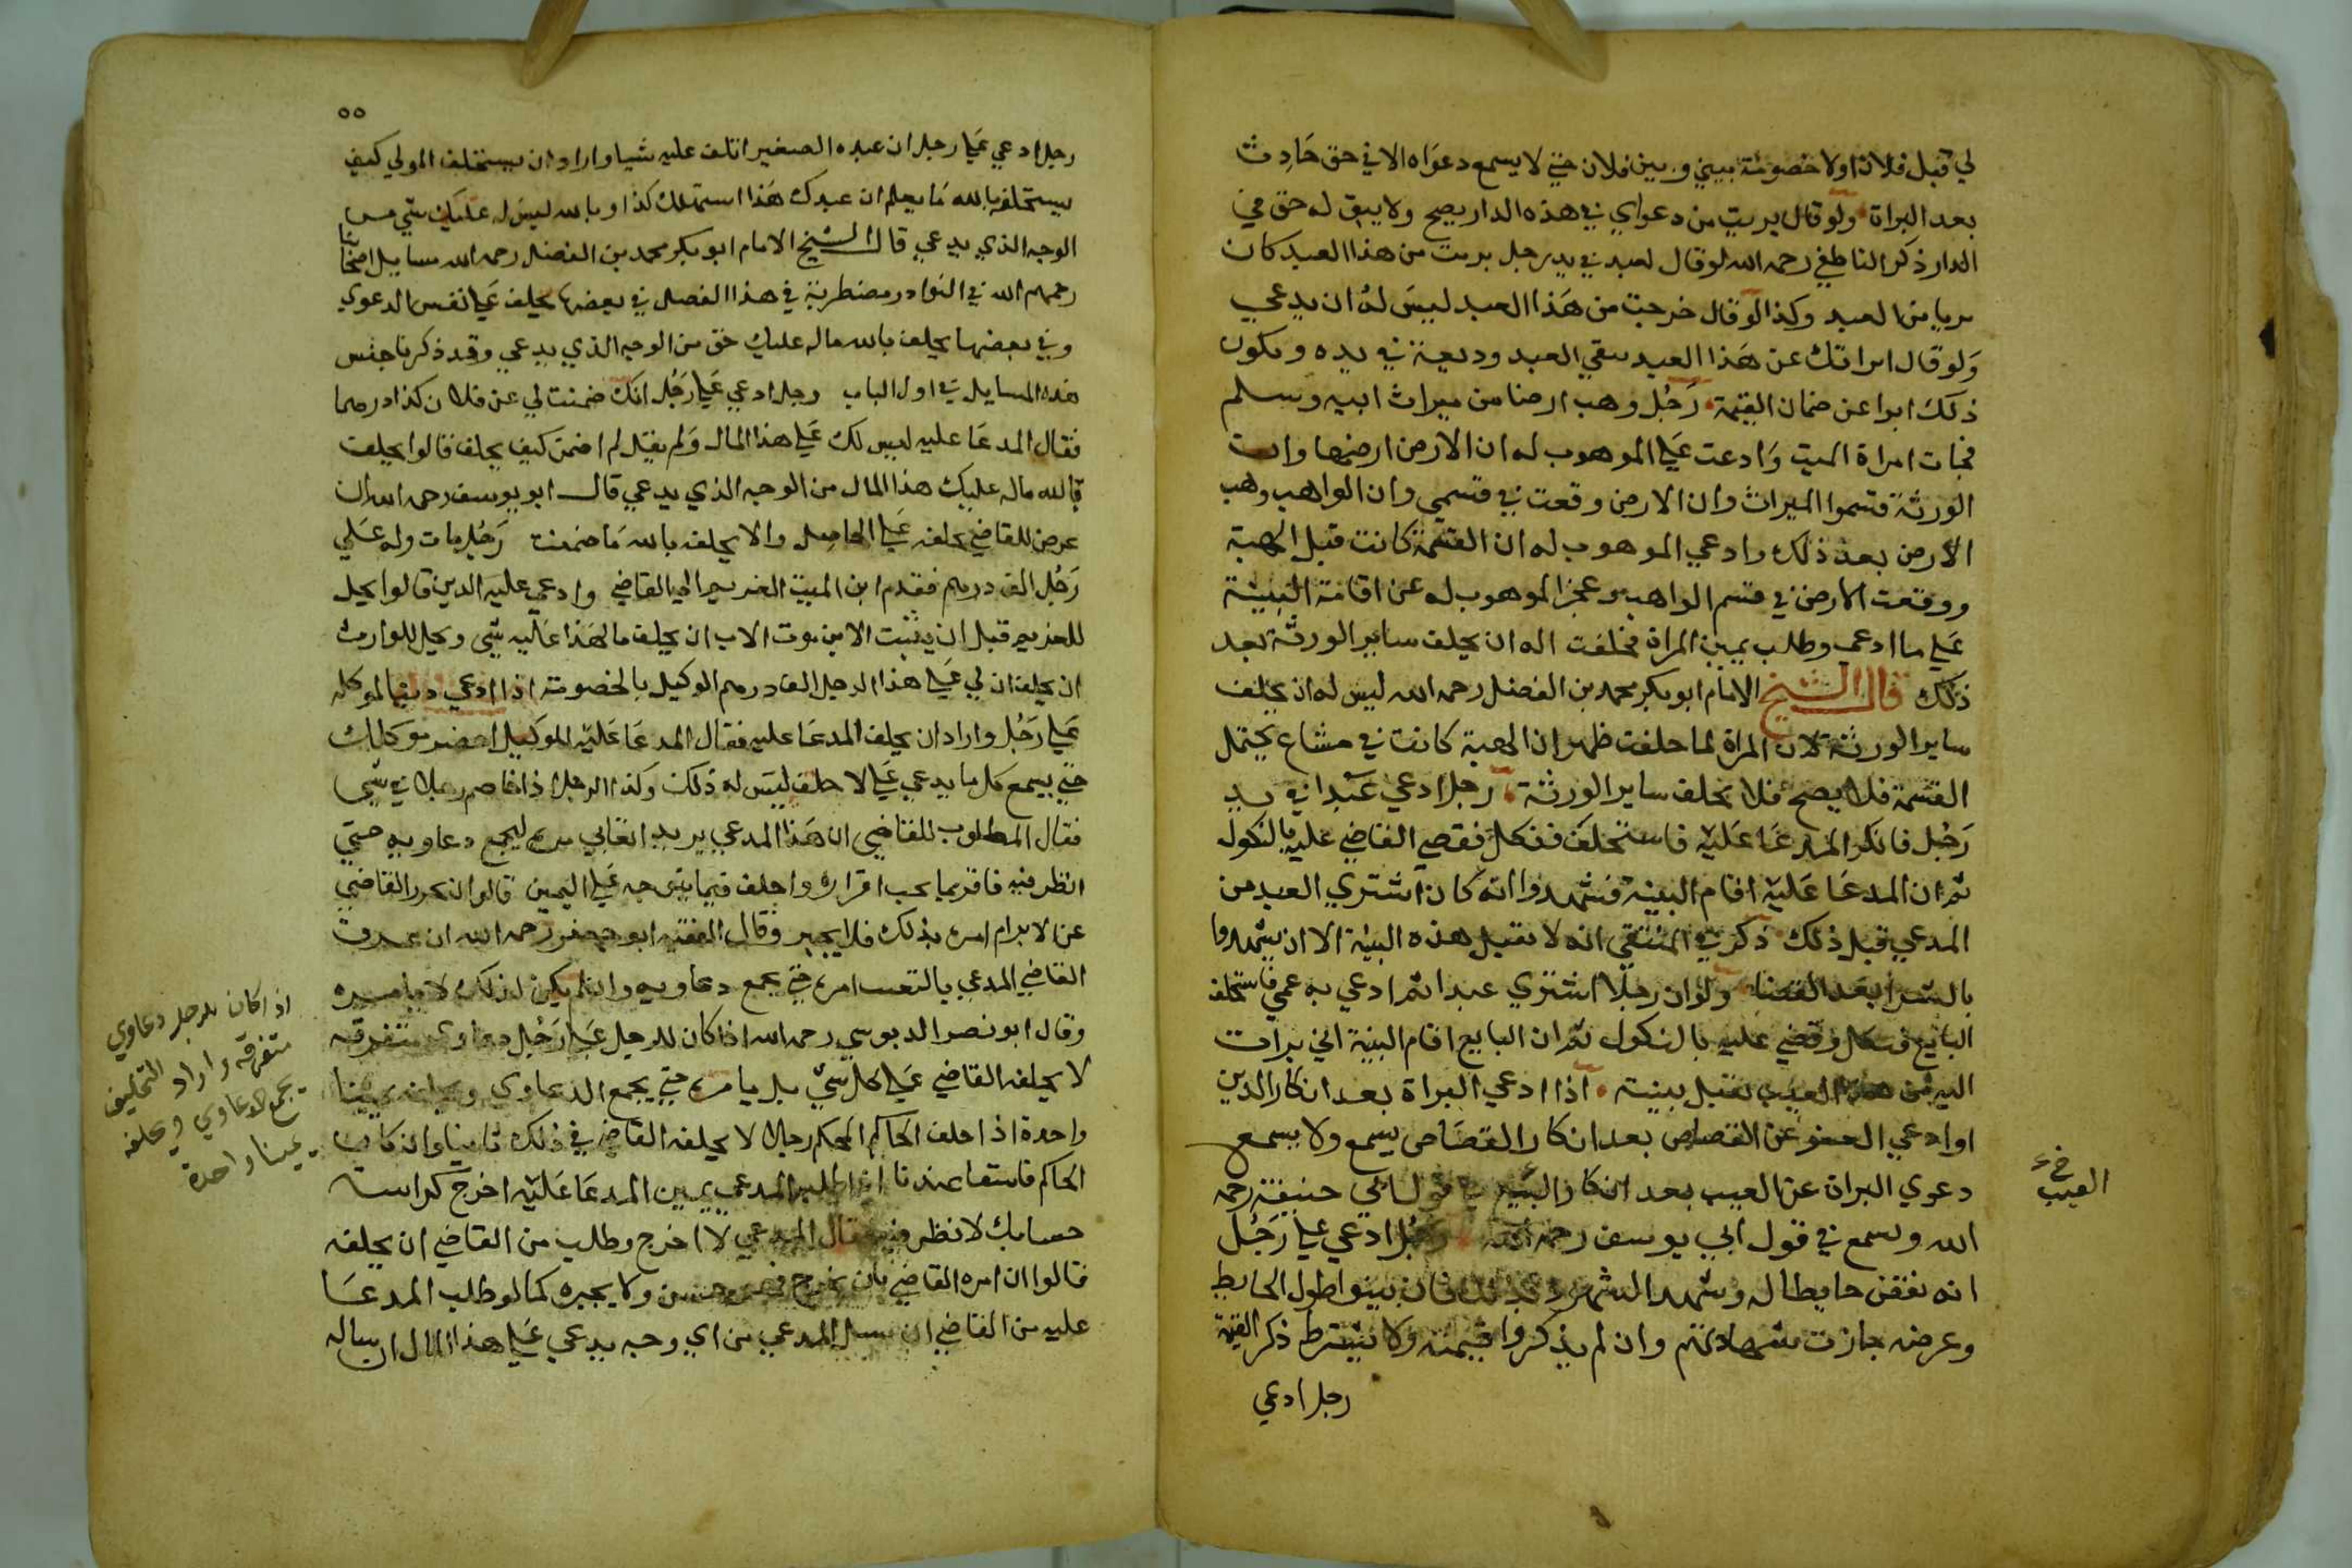 لي قبل فلان او لا خصومة بيني وبين فلان حتى لا يسمع دعواه الا في حق حادث
بعد البراة ولو قال بريت من دعواي في هذه الدار يصح ولا يبقى له حق في
الدار ذكر الناطفي رحمه الله لو قال لعبد في يد رجل بريت من هذا العبد كان
بريا من العبد وكذا لو قال خرجت من هذا العبد ليس له ان يدعي
ولو قال ابراتك عن هذا العبد يبقي العبد وديعة في يده ويكون
ذلك ابرا عن ضمان القيمة رجل وهب ارضا من ميراث ابيه وسلم
فجات امراة الميت وادعت علي الموهوب له ان الارض ارضها وان
الورثة قسموا الميراث وان الارض وقعت في قسمي وان الواهب وهب
الارض بعد ذلك وادعي الموهوب له ان القسمة كانت قبل الهبة
ووقعت الارض في قسم الواهب وعجز الموهوب له عن اقامة البينة
علي ما ادعى وطلب يمين المراة فحلفت اله ان يحلف ساير الورثة بعد
ذلك قال الشيخ الامام ابو بكر محمد بن الفضل رحمه الله ليس له ان يحلف
ساير الورثة لان المراة لما حلفت ظهر ان الهبة كانت في مشاع يحتمل
القسمة فلا يصح فلا يحلف ساير الورثة رجل ادعي عبدا في يد
رجل فانكر المدعا عليه فاستحلف فنكل فقضي القاضي عليه بالنكول
ثم ان المدعا عليه اقام البينة فشهدوا انه كان اشتري العبد من
المدعي قبل ذلك ذكر في المنتقي انه لا تقبل هذه البينة الا ان يشهدوا
بالشرا بعد القضا ولو ان رجلا اشتري عبدا ثم ادعي به عمي فاستحلف
البايع فنكل وقضي عليه بالنكول ثم ان البايع اقام البينة اني برات
اليه من هذا العيب تقبل بينته اذا ادعي البراة بعد انكار الدين
او ادعي العفو عن القصاص بعد انكار القصاص يسمع ولا يسمع
دعوي البراة عن العيب بعد انكار البيع في قول ابي حنيفة رحمه
الله ويسمع في قول ابي يوسف رحمه الله رجل ادعي علي رجل
انه نقض حايطا له وشهد الشهود بذلك فان بينوا طول الحايط
وعرضه جازت شهادتهم وان لم يذكروا قيمته ولا يشترط ذكر القيمة
رجل ادعي
العيب
٥٥
رجل ادعي علي رجل ان عبده الصغير اتلف عليه شيا واراد ان يستحلف المولي كيف
يستحلفه بالله ما يعلم ان عبدك هذا استهلك كذا او بالله ليس له عليك شي من
الوجه الذي يدعي قال الشيخ الامام ابو بكر محمد بن الفضل رحمه الله مسايل اصحابنا
رحمهم الله في النوادر مضطربة في هذا الفصل في بعضها يحلف علي نفس الدعوي
وفي بعضها يحلف بالله ماله عليك حق من الوجه الذي يدعي وقد ذكرنا جنس
هذه المسايل في اول الباب رجل ادعي علي رجل انك ضمنت لي عن فلان كذا درهما
فقال المدعا عليه ليس لك علي هذا المال ولم يقل لم اضمن كيف يحلف قالوا يحلف
بالله ماله عليك هذا المال من الوجه الذي يدعي قال ابو يوسف رحمه الله ان
عرض للقاضي يحلفه علي الحاصل والا يحلف بالله ما ضمنت رجل مات وله علي
رجل الف درهم فقدم ابن الميت الغريم الي القاضي وادعي عليه الدين قالوا يحل
للغريم قبل ان يثبت الابن موت الاب ان يحلف ما لهذا عليه شي ويحل للوارث
ان يحلف ان لي علي هذا الرجل الف درهم الوكيل بالخصومة اذا ادعي دينا لموكله
علي رجل واراد ان يحلف المدعا عليه فقال المدعا عليه للوكيل احضر موكلك
حتي يسمع كل ما يدعي علي لا حلف ليس له ذلك وكذا الرجل اذا خاصم رجلا في شي
فقال المطلوب للقاضي ان هذا المدعي يريد اتعابي مره ليجمع دعاويه حتي
انظر فيه فاقر بما يجب اقراره واحلف فيما يتوجه علي اليمين قالوا ان تحرر القاضي
عن الابرام امره بذلك فلا يجبر وقال الفقيه ابو جعفر رحمه الله ان عرف
القاضي المدعي بالتعنت امره حتي يجمع دعاويه وان لم يكن لذلك لا يامره
وقال ابو نصر الدبوسي رحمه الله اذا كان للرجل علي رجل دعاوي متفرقة
لا يحلفه القاضي علي كل شي بل يامره حتي يجمع الدعاوي ويحلفه يمينا
واحدة اذا حلف الحاكم المحكم رجلا لا يحلفه القاضي في ذلك ثانيا وان كان
الحاكم فاسقا عندنا اذا طلب المدعي يمين المدعا عليه اخرج كراسة
حسابك لانظر فيه فقال المدعي لا اخرج وطلب من القاضي ان يحلفه
قالوا ان امره القاضي بان يخرج فحسن ولا يجبره كما لو طلب المدعا
عليه من القاضي ان يسل المدعي من اي وجه يدعي علي هذا المال ان ساله
اذا كان للرجل دعاوي
متفرقه واراد التحليف
يجمع الدعاوي ويحلفه
يمينا واحدة